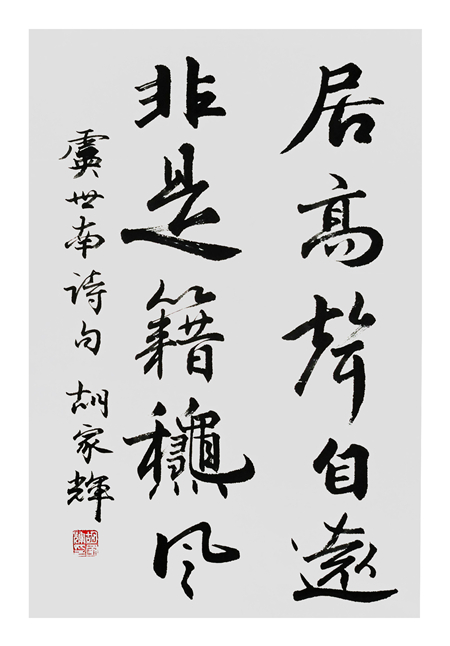 居高聲自遠
非是籍龝風
虞世南詩句 胡家輝